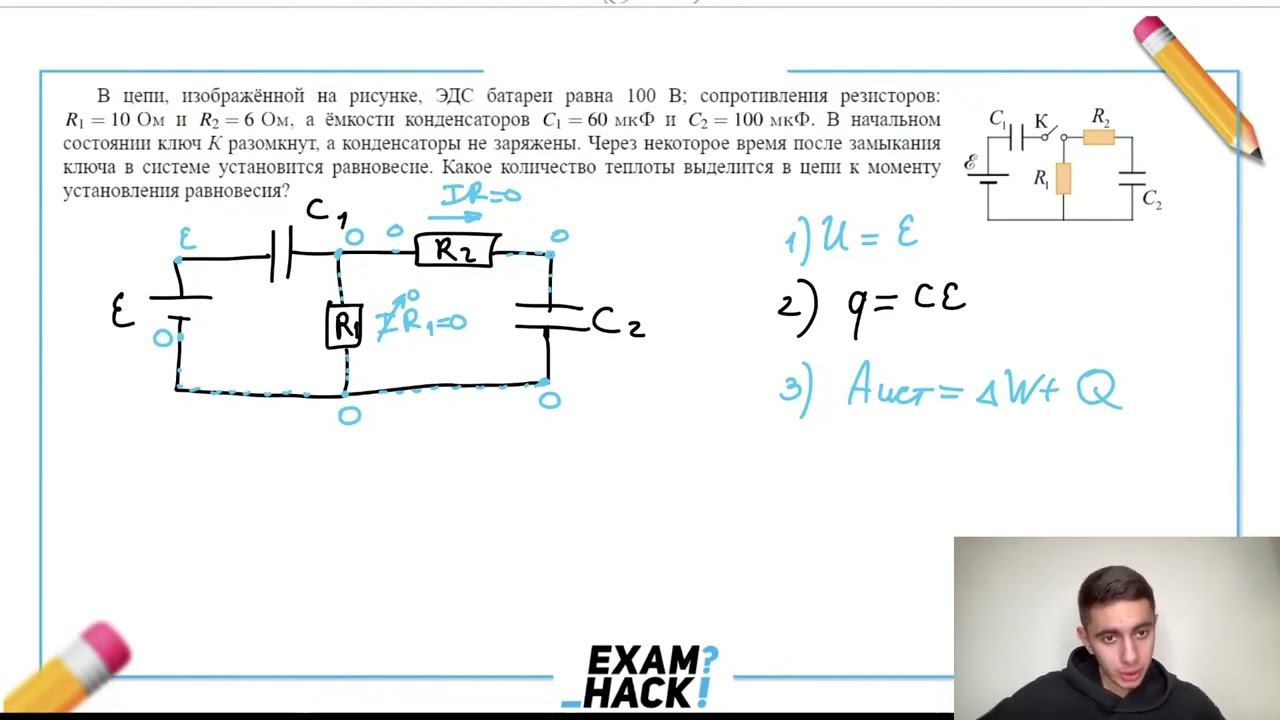 В цепи, изображённой на рисунке, ЭДС батареи равна 100 В; сопротивления резисторов:
R₁ = 10 Ом и R₂ = 6 Ом, а ёмкости конденсаторов C₁ = 60 мкФ и C₂ = 100 мкФ. В начальном
состоянии ключ К разомкнут, а конденсаторы не заряжены. Через некоторое время после замыкания
ключа в системе установится равновесие. Какое количество теплоты выделится в цепи к моменту
установления равновесия?
C₁ К R₂
ℰ R₁ C₂
C₁ IR=0
ε 0 0 R₂ 0
ε R₁ IR₁=0 0 C₂
0
0 0
1) U = ε
2) q = Cε
3) Aист = ΔW + Q
EXAM?
_HACK!